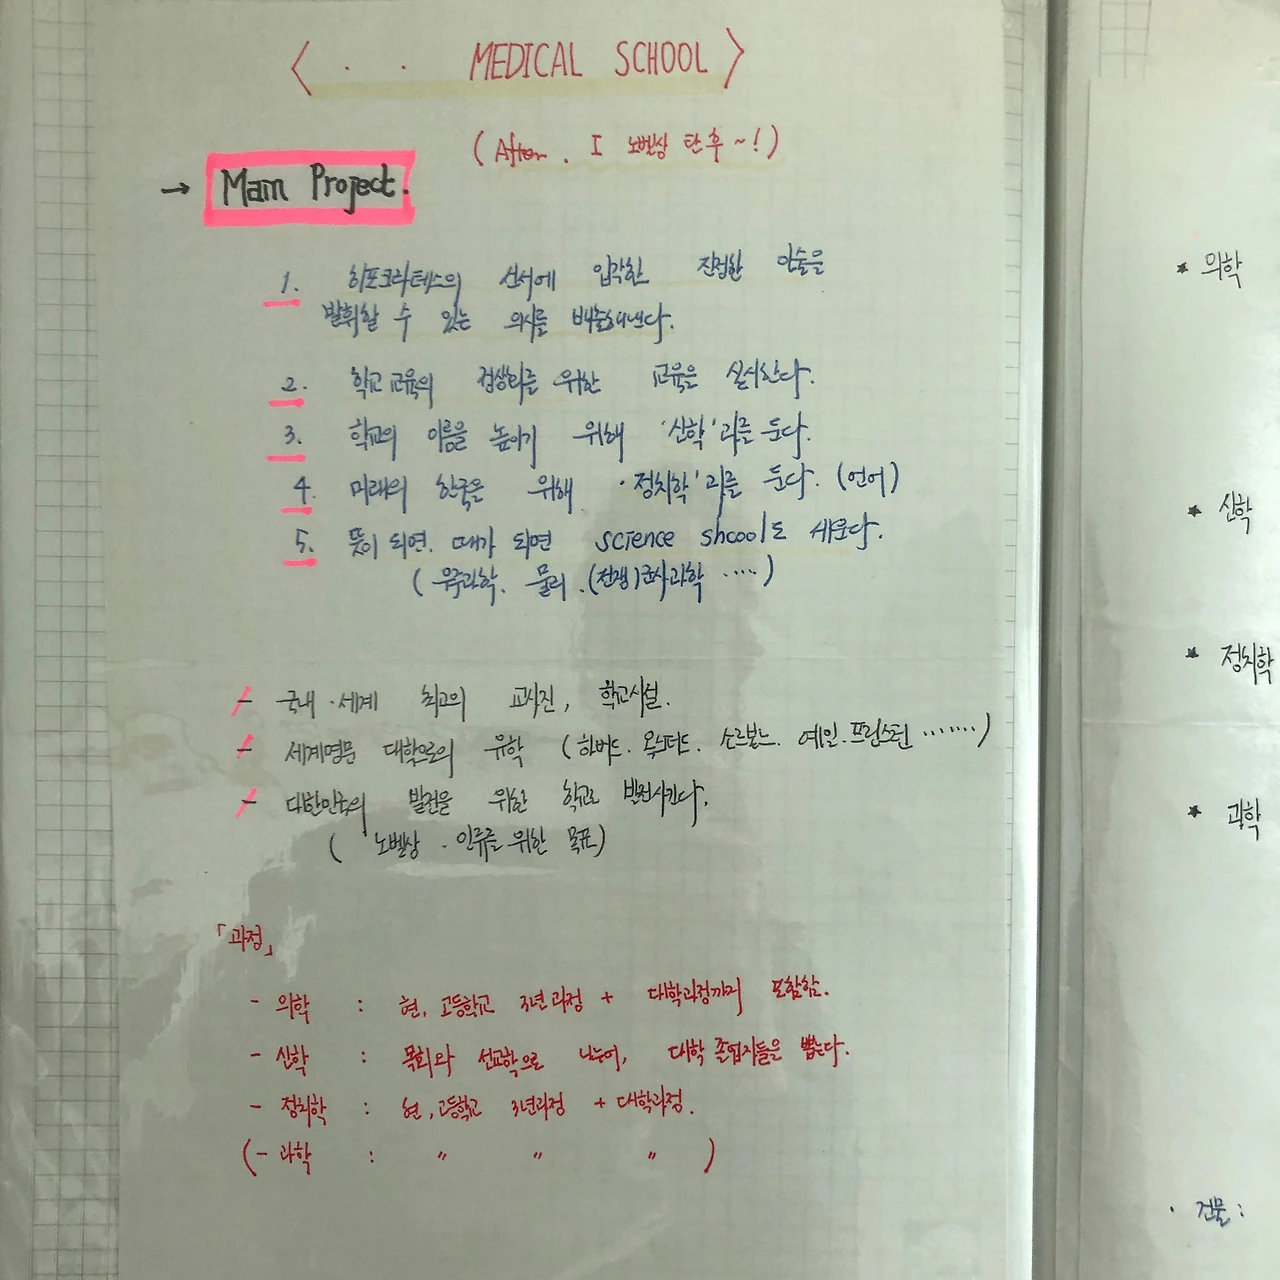 < . . MEDICAL SCHOOL >
(After. I 노벨상 탄 후~!)
→ Main Project.
1. 히포크라테스의 선서에 입각한 진정한 인술을
발휘할 수 있는 의사를 배출해낸다.
2. 학교교육의 정상화를 위한 교육을 실시한다.
3. 학교의 이름을 높이기 위해 '신학'과를 둔다.
4. 미래의 한국을 위해 '정치학'과를 둔다. (언어)
5. 뜻이 되면. 때가 되면 science shcool도 세운다.
(우주과학. 물리. (전쟁)군사과학 ....)
- 국내·세계 최고의 교사진, 학교시설.
- 세계명문 대학으로의 유학 (하버드. 옥스퍼드. 소르본느. 예일. 프린스턴 .......)
- 대한민국의 발전을 위한 학교로 발전시킨다.
(노벨상 · 인류를 위한 목표)
「과정」
- 의학 : 현, 고등학교 3년과정 + 대학과정까지 포함함.
- 신학 : 목회와 선교학으로 나누어, 대학 졸업자들을 뽑는다.
- 정치학 : 현, 고등학교 3년과정 + 대학과정.
(- 과학 : " " ")
★ 의학
★ 신학
★ 정치학
★ 과학
· 건물 :